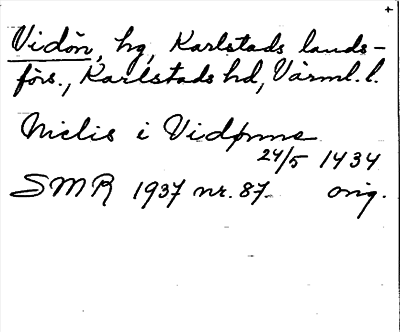 Vidön, hg, Karlstads lands-
förs., Karlstads hd, Värml. l.
Niclis i Vidønne
24/5 1434
SMR 1937 nr. 87. orig.